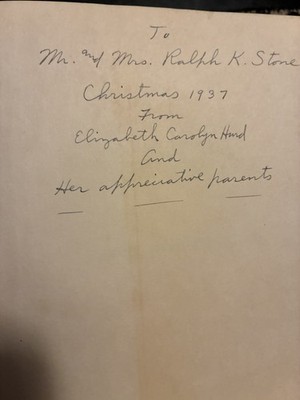 To
Mr. and Mrs. Ralph K. Stone
Christmas 1937
From
Elizabeth Carolyn Hurd
And
Her appreciative parents